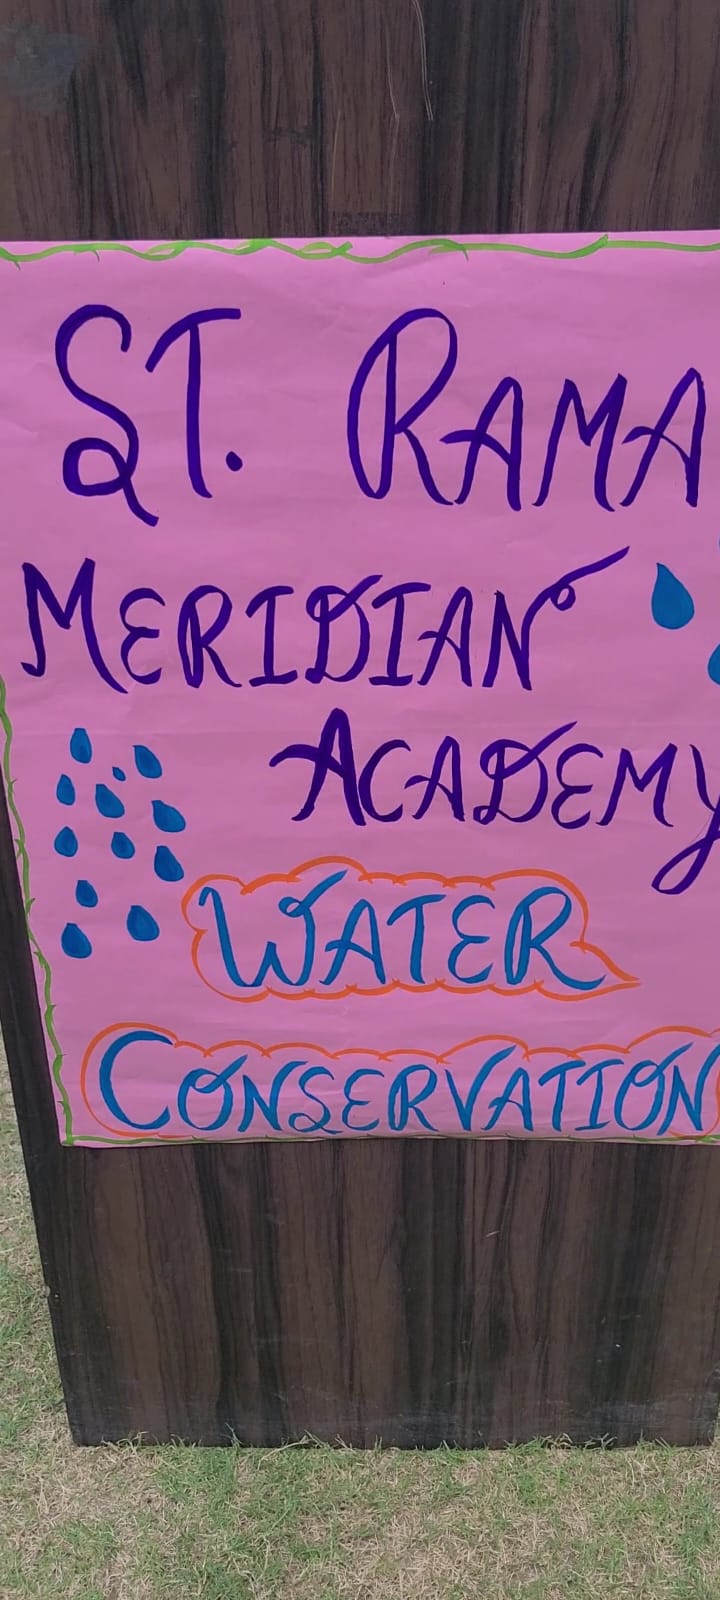 ST. RAMA
MERIDIAN
ACADEMY
WATER
CONSERVATION